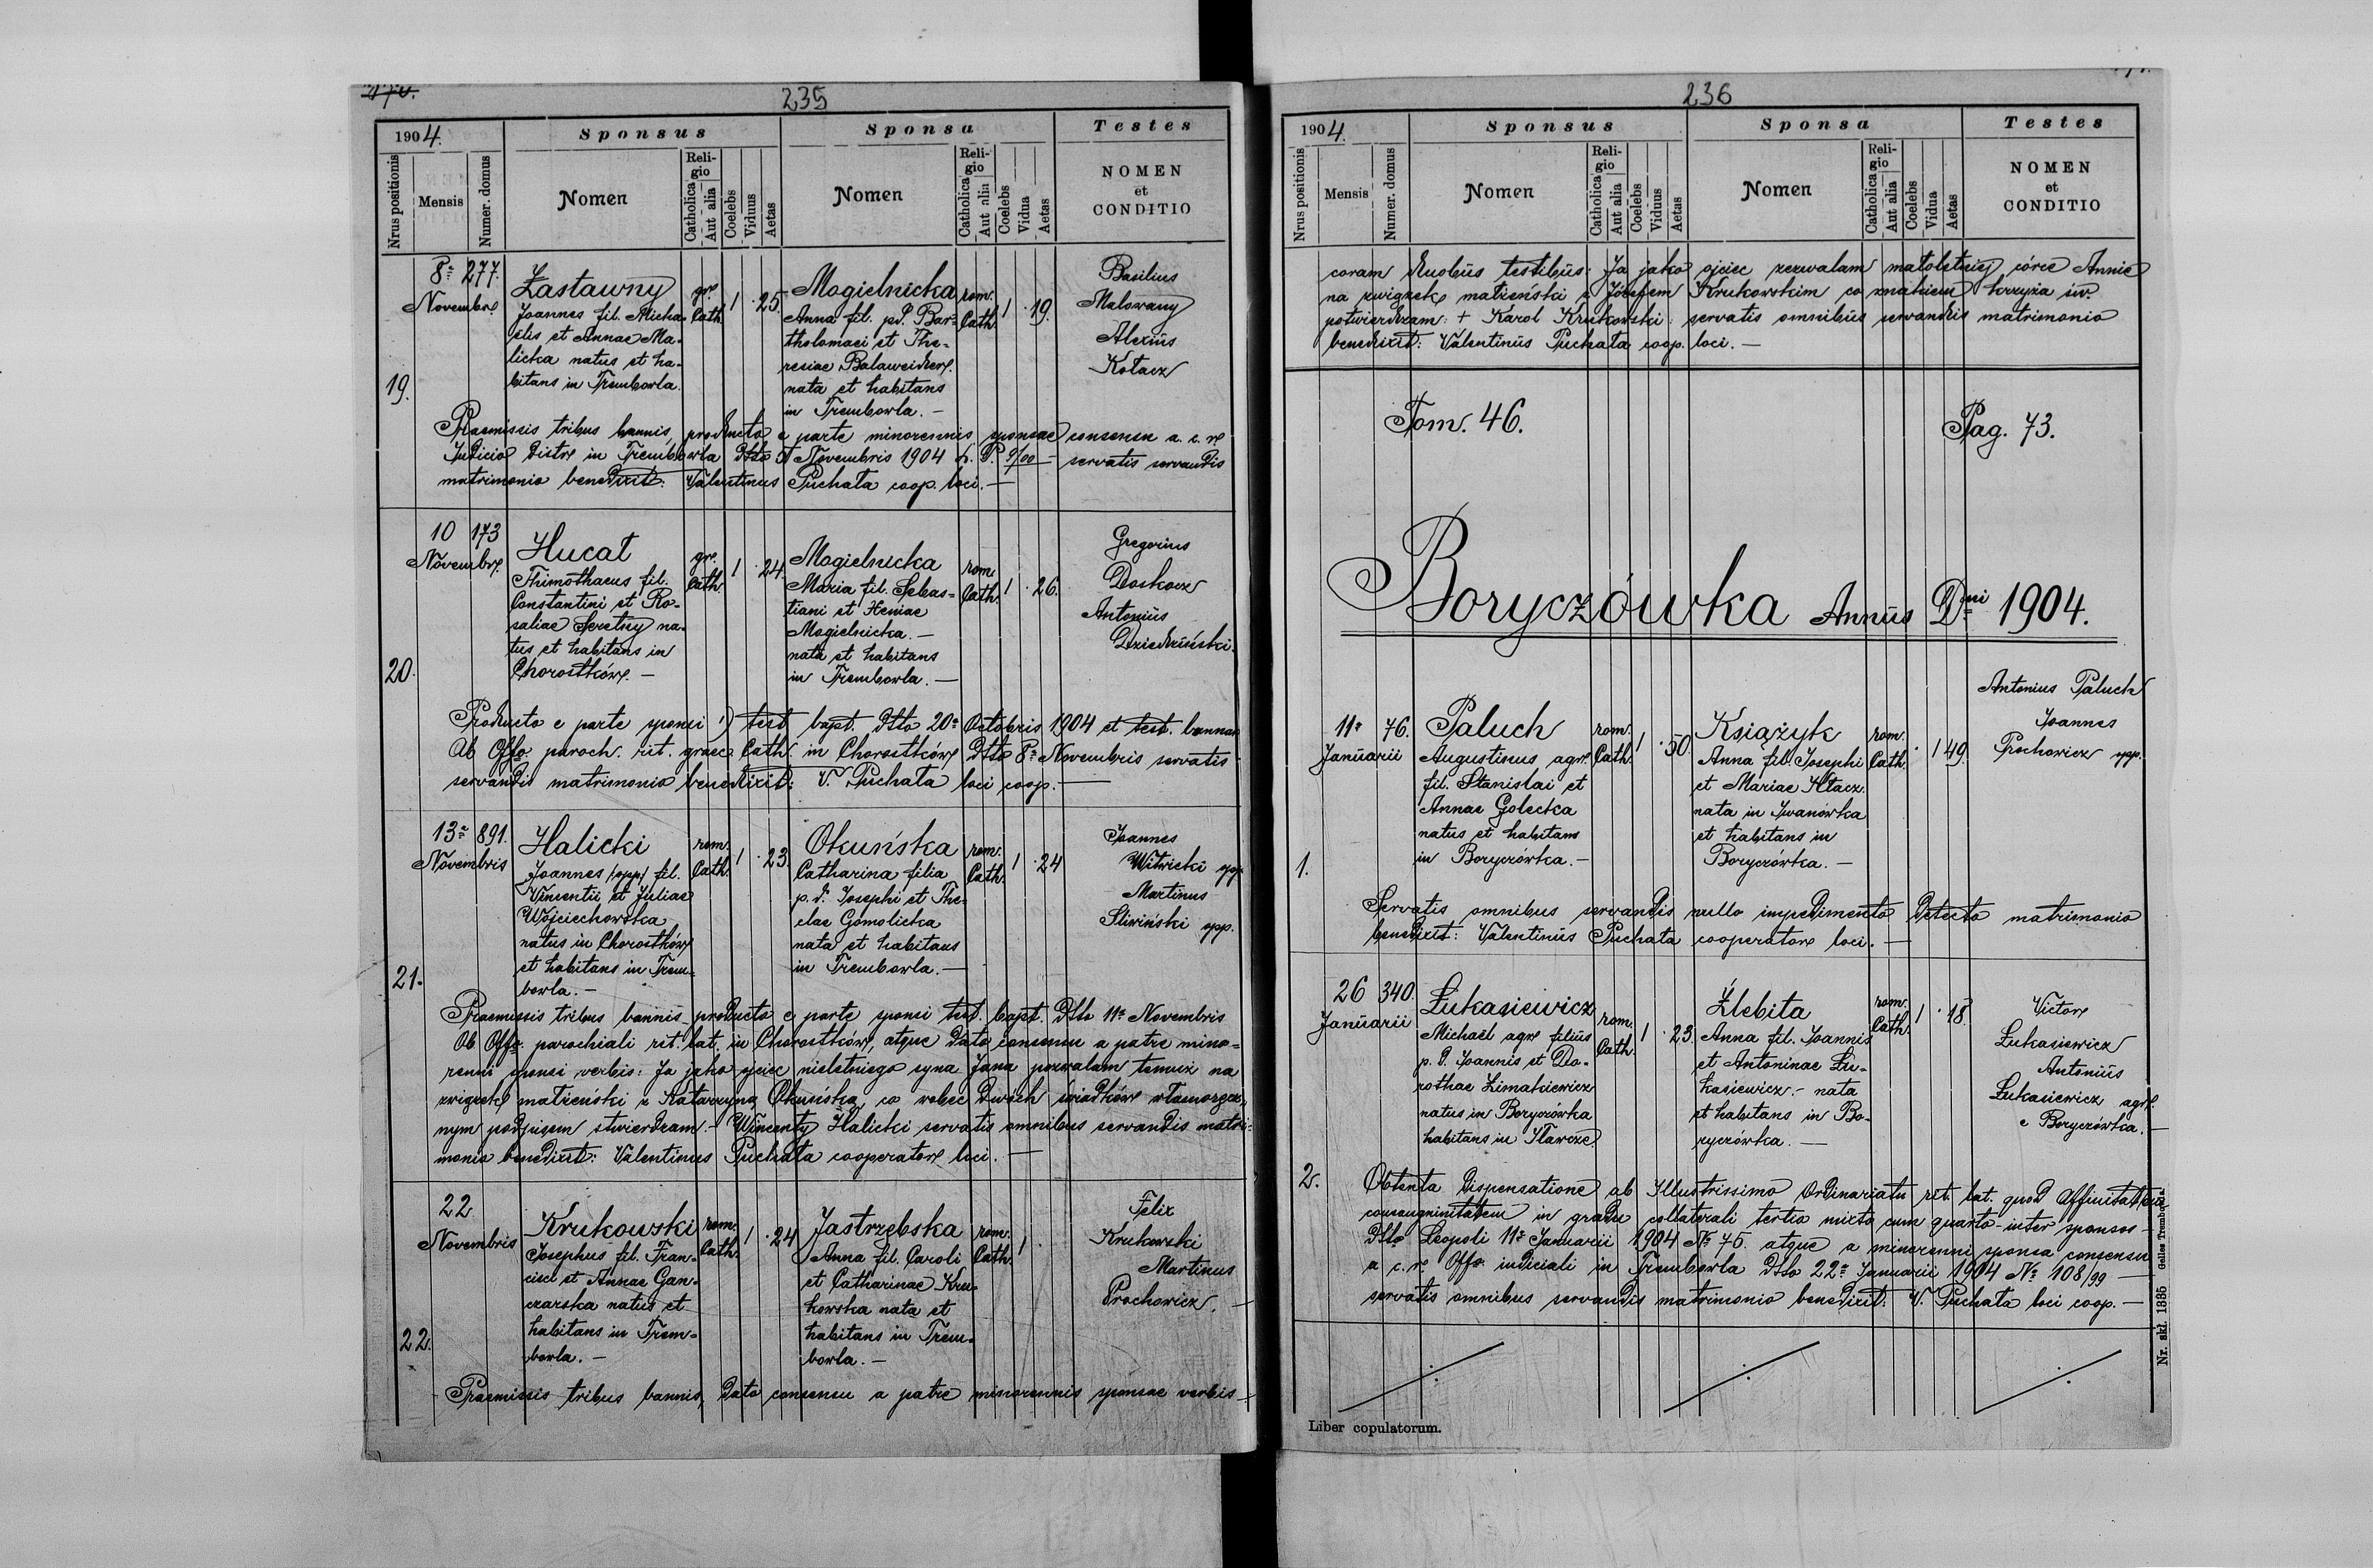 235
1904.
Sponsus
Sponsa
Testes
Nrus positionis
Mensis
Numer. domus
Nomen
Religio
Catholica
Aut alia
Coelebs
Viduus
Aetas
Nomen
Religio
Catholica
Aut alia
Coelebs
Vidua
Aetas
NOMEN
et
CONDITIO
19.
8ª 277.
Novembr.
Zastawny
Joannes fil. Micha-
elis et Annae Ma-
licka natus et ha-
bitans in Trembowla.
gr. Cath. 1 · 25.
Mogielnicka
Anna fil. pd. Bar-
tholomaei et The-
resiae
nata et habitans
in Trembowla. —
rom. Cath. 1 · 19.
Basilius
Malowany
Alexius
Kotacz
Praemissis tribus bannis, producto e parte minorennis sponsae consensu a c. r.
Judicio Distr. in Trembowla Dtto Novembris 1904 L. P. servatis servandis
matrimonio benedixit: Valentinus Puchata coop. loci. —
20.
10 173
Novembr.
Hucat
Thimothaeus fil.
Constantini et Ro-
saliae Seretny na-
tus et habitans in
Chorostków. —
gr. Cath. 1 · 24.
Mogielnicka
Maria fil. Sebas-
tiani et Heniae
Mogielnicka. —
nata et habitans
in Trembowla. —
rom. Cath. 1 · 26.
Gregorius
Doskocz
Antonius
Dziedziński.
Producto e parte sponsi 1) test. bapt. Dtto 20ª Octobris 1904 et test. bannor.
Ab Offo paroch. rit. graec. Cath. in Chorostków Dtto 8ª Novembris servatis
servandis matrimonio benedixit: V. Puchata loci coop. —
21.
13ª 891.
Novembris
Halicki
Joannes /opp/ fil.
Vincentii et Juliae
Wojciechowska
natus in Chorostków
et habitans in Trem-
bowla. —
rom. Cath. 1 · 23.
Okuńska
Catharina filia
p. d. Josephi et The-
clae Gomolicka
nata et habitans
in Trembowla. —
rom. Cath. 1 · 24
Joannes
Witwicki opp.
Martinus
Sliwiński opp.
Praemissis tribus bannis, producto e parte sponsi test. bapt. Dtto 11ª Novembris
Ab Offo parochiali rit. lat. in Chorostków, atque dato consensu a patre mino-
renni sponsi verbis: Ja jako ojciec nieletniego syna Jana pozwalam temuż na
związek małżeński z Katarzyną Okuńską co wobec dwóch świadków własnoręcz-
nym podpisem stwierdzam. — Wincenty Halicki servatis omnibus servandis matri-
monio benedixit: Valentinus Puchata cooperator loci. —
22.
22
Novembris
Krukowski
Josephus fil. Fran-
cisci et Annae Gan-
czarska natus et
habitans in Trem-
bowla. —
rom. Cath. 1 · 24
Jastrzębska
Anna fil. Caroli
et Catharinae Kru-
kowska nata et
habitans in Trem-
bowla. —
rom. Cath. 1 ·
Felix
Krukowski
Martinus
Prochowicz. —
Praemissis tribus bannis, Dato consensu a patre minorennis sponsae verbis —
236
1904.
Sponsus
Sponsa
Testes
Nrus positionis
Mensis
Numer. domus
Nomen
Religio
Catholica
Aut alia
Coelebs
Viduus
Aetas
Nomen
Religio
Catholica
Aut alia
Coelebs
Vidua
Aetas
NOMEN
et
CONDITIO
coram duobus testibus: Ja jako ojciec zezwalam małoletniej córce Annie
na związek małżeński z Józefem Krukowskim co znakiem krzyża św.
potwierdzam: + Karol Krukowski: servatis omnibus servandis matrimonio
benedixit: Valentinus Puchata coop. loci. —
Tom. 46. Pag. 73.
Boryczówka Annus Dni 1904.
1.
11ª 76.
Januarii
Paluch
Augustinus agr.
fil. Stanislai et
Annae Golecka
natus et habitans
in Boryczówka. —
rom. Cath. 1 · 50.
Książyk
Anna fil. Josephi
et Mariae Htacz.
nata in Iwanówka
et habitans in
Boryczówka. —
rom. Cath. · 1 49.
Antonius Paluch
Joannes
Prochowicz opp.
Servatis omnibus servandis nullo impedimento detecto matrimonio
benedixit: Valentinus Puchata cooperator loci. —
2.
26 340.
Januarii
Łukasiewicz
Michaël agr. filius
p. d. Joannis et Do-
rothae Zimakiewicz
natus in Boryczówka
habitans in Iławcze
rom. Cath. 1 · 23.
Żlebita
Anna fil. Joannis
et Antoninae Łu-
kasiewicz. — nata
et habitans in Bo-
ryczówka. —
rom. Cath. 1 · 18.
Victor
Łukasiewicz
Antonius
Łukasiewicz agr.
e Boryczówka. —
Obtenta Dispensatione ab Illustrissimo Ordinariatu rit. lat. quod
consangninitatem in gradu collaterali tertio mixto cum quarto inter sponsos —
Dtto Leopoli 11ª Januarii 1904 № 75. atque a minorenni sponsa consensu
a c. r. Offo iudiciali in Trembowla Dtto 22ª Januarii 1904 № 108/99 —
servatis omnibus servandis matrimonio benedixit: V. Puchata loci coop. —
Liber copulatorum.
Nr. skł. 1885